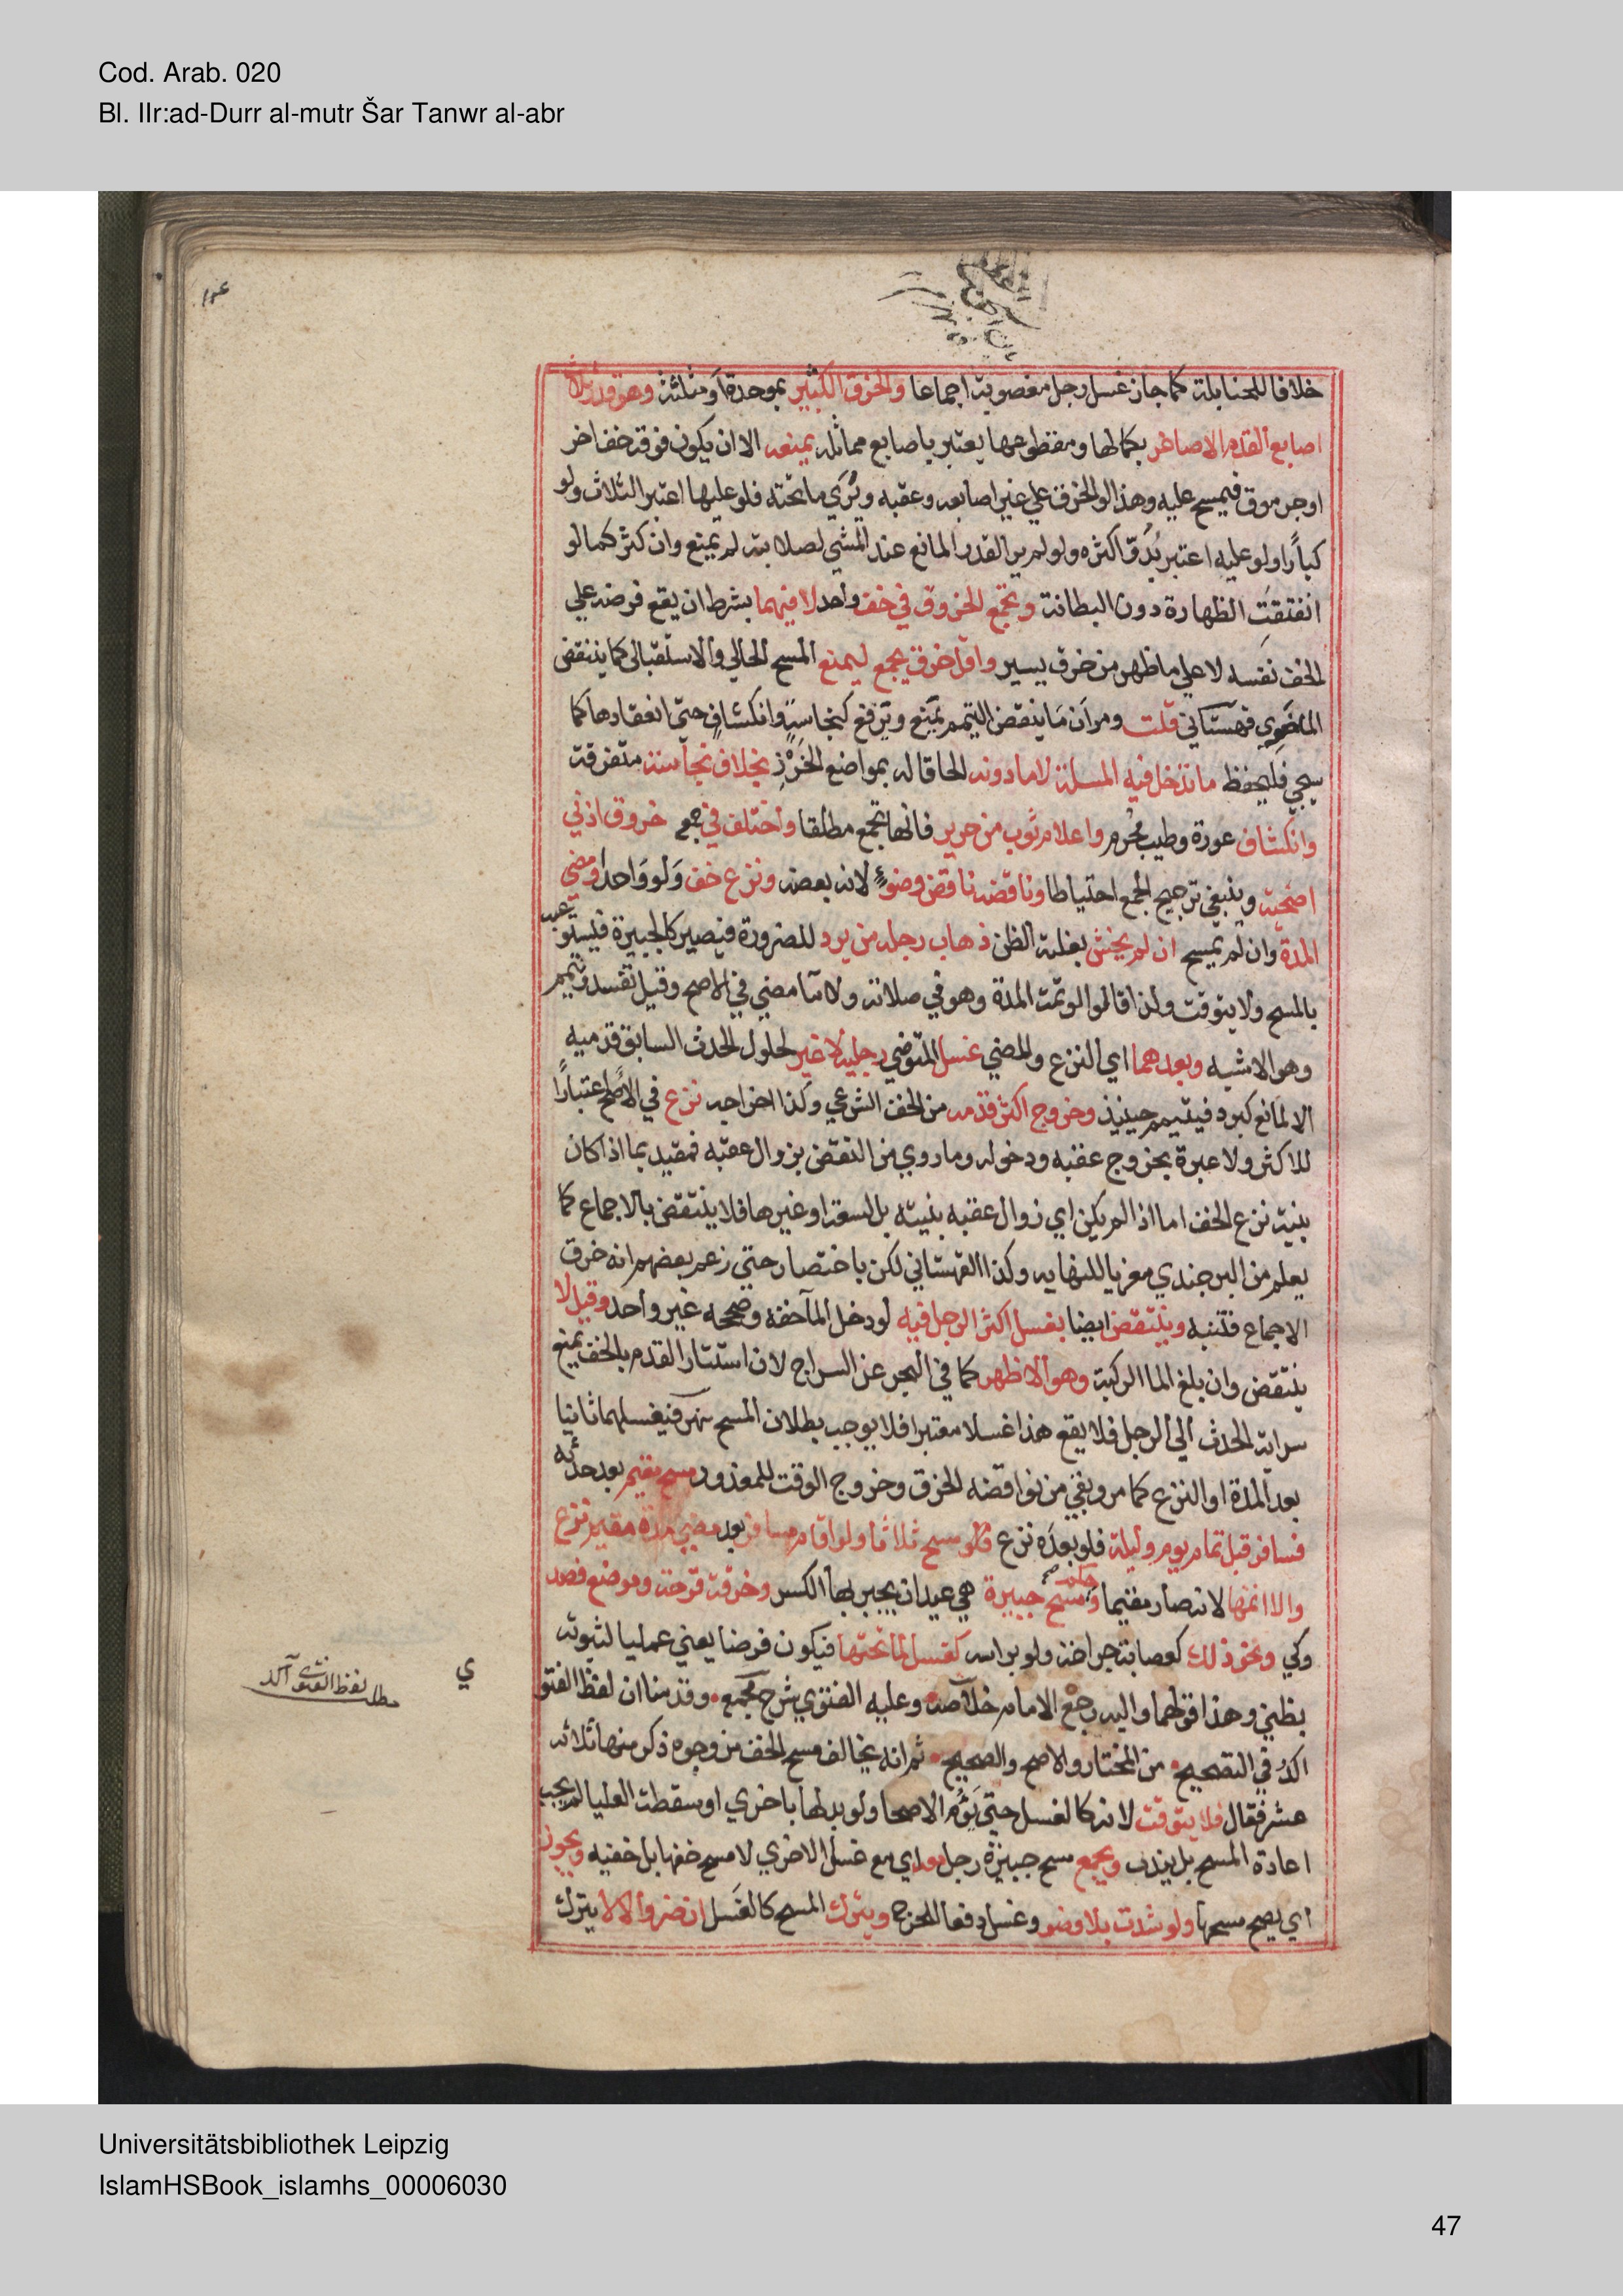 Cod. Arab. 020
Bl. IIr:ad-Durr al-mutr Šar Tanwr al-abr
خلافا للحنابلة كما جاز غسل رجل مغصوبة اجماعا والخرق الكبير بموحدة أو مثلثة وهو قدر ثلاث
اصابع القدم الاصاغر بكمالها ومقطوعها يعتبر باصابع مماثله يمنعه الا ان يكون فوقه خف اخر
او جرموق فيمسح عليه وهذا لو الخرق علي غير اصابعه وعقبه ويُرَي ما تحته فلو عليها اعتبر الثلاث ولو
كبارًا ولو عليه اعتبر بُدُوّ اكثره ولو لم ير القدر المانع عند المشي لصلابته لم يمنع وان كثر كما لو
انفتقَت الظهارة دون البطانة وتجمع الخروق في خف واحد لا فيهما بشرط ان يقع فرضه علي
الخف نفسه لا علي ما ظهر من خرق يسير واقل خرق يجمع ليمنع المسح الحالي والاستقبالي كما ينتقض
الماضوي قهستاني قلت ومر أن ما ينقض التيمم يمنع ويرفع كنجاسةٍ وانكشافٍ حتى انعقادها كما
سيجي فليحفظ ما تدخل فيه المسلة لا ما دونه الحاقا له بمواضع الخرز بخلاف نجاسة متفرقة
وانكشاف عورة وطيب محرم واعلام ثوب من حرير فانها تجمع مطلقا واختلف في جمع خروق اذني
اضحية وينبغي ترجيح الجمع احتياطا وناقضه ناقض وضوء لانه بعضه ونزع خف ولو واحدا ومضي
المدة وان لم يمسح ان لم يخش بغلبة الظن ذهاب رجله من برد للضرورة فيصير كالجبيرة فيستوعبه
بالمسح ولا يتوقت ولذا قالوا لو تمت المدة وهو في صلاته ولا ما مضي في الاصح وقيل تفسد ويتيمم
وهو الاشبه وبعدهما اي النزع والمضي غسل المتوضي رجليه لا غير لحلول الحدث السابق قدميه
الا لمانع كبرد فيتيمم حينيذ وخروج اكثر قدمه من الخف الشرعي وكذا اخراجه نزع في الاصح اعتبارًا
للاكثر ولا عبرة بخروج عقبه ودخوله وما روي من النقض بزوال عقبه فمقيد بما اذا كان
بنية نزع الخف اما اذا لم يكن اي زوال عقبه بنيته بل لسعة او غيرها فلا ينتقض بالاجماع كما
يعلم من البرجندي معزيا للنهايه وكذا القهستاني لكن باختصار حتي زعم بعضهم انه خرق
الاجماع فتنبه وينتقض ايضا بغسل اكثر الرجل فيه لو دخل الما خفه وصححه غير واحد وقيل لا
ينتقض وان بلغ الما الركبة وهو الاظهر كما في البحر عن السراج لان استتار القدم بالخف يمنع
سراية الحدث الي الرجل فلا يقع هذا غسلا معتبرا فلا يوجب بطلان المسح نهر فيغسلهما ثانيا
بعد المدة او النزع كما مر وبقي من نواقضه الخرق وخروج الوقت للمعذور مسح مقيم بعد حدثه
فسافر قبل تمام يوم وليلة فلو بعده نزع فلو مسح ثلاثا ولو اقام مسافر بعد مضي مدة مقيم نزع
والا اتمها لانه صار مقيما وحكم مسح جبيرة هي عيدان يجبر بها الكسر وخرقة قرحة وموضع فصد
وكي ونحو ذلك كعصابة جراحة ولو براسه كغسل لما تحتها فيكون فرضا يعني عمليا لثبوته
بظني وهذا قولهما واليه رجع الامام خلاصه وعليه الفتوي شرح مجمع وقدمنا ان لفظ الفتو
ي
اكد في التصحيح من المختار والاصح والصحيح ثم انه يخالف مسح الخف من وجوه ذكر منها ثلاثه
عشر فقال فلا يتوقت لانه كالغسل حتي يؤم الاصحا ولو بدلها باخري او سقطت العليا لم يجب
اعادة المسح بل يندب ويجمع مسح جبيرة رجل معه اي مع غسل الاخري لا مسح خفها بل خفيه ويجوز
اي يصح مسحها ولو شدت بلا وضو وغسل دفعا للحرج ويترك المسح كالغسل ان ضر والا لا يترك
مطلب لفظ الفتوى آكد
Universitätsbibliothek Leipzig
IslamHSBook_islamhs_00006030
47